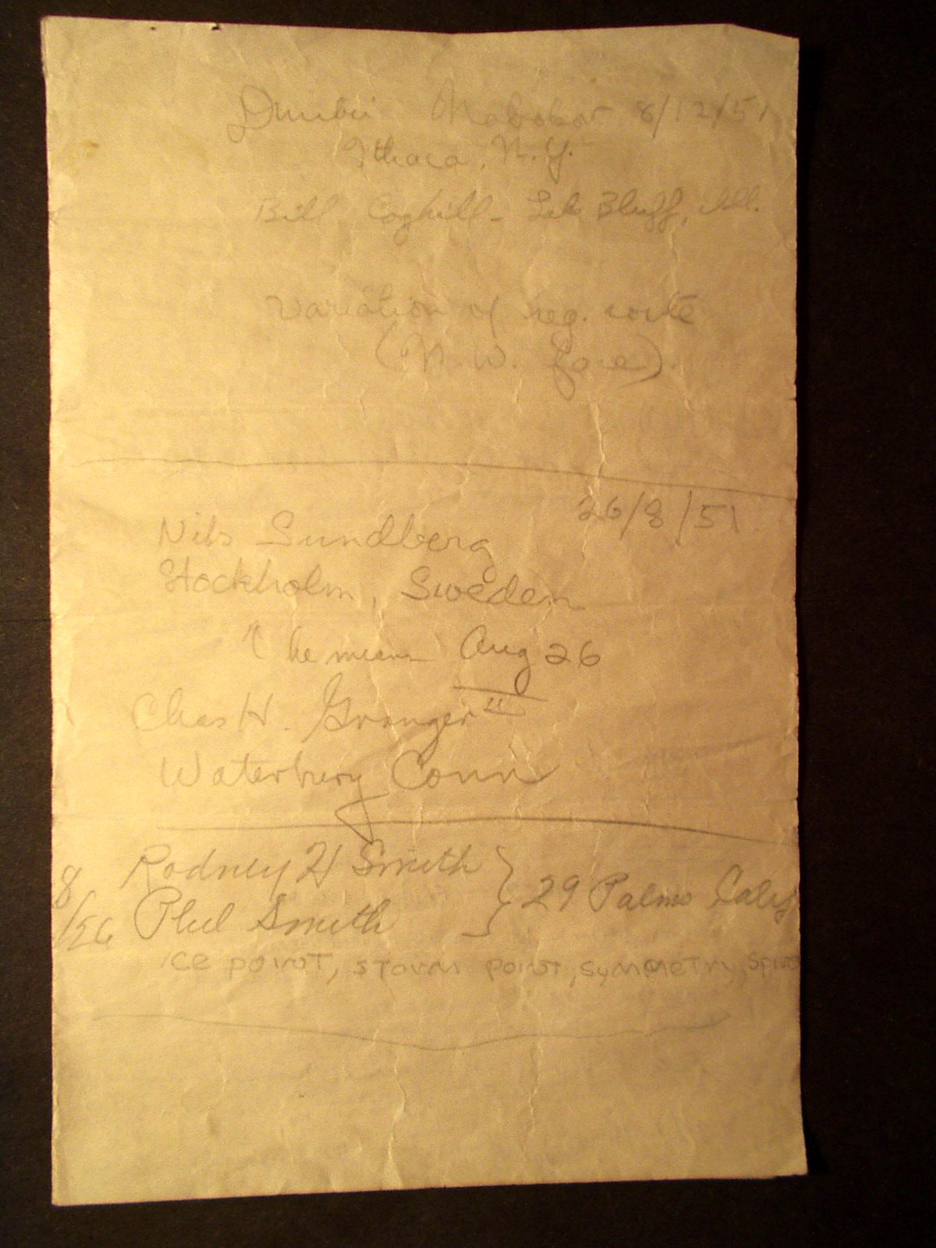 Dmitri Nabokov 8/12/51
Ithaca, N.Y.
Bill Coghill - Lake Bluff, Ill.
Variation of reg. route
(N.W. face).
26/8/51.
Nils Sundberg
Stockholm, Sweden
↑ he means Aug 26
Chas H. Granger II
Waterbury Conn
Rodney H Smith
8/26 Phil Smith } 29 Palms Calif
ice point, storm point, symmetry spire